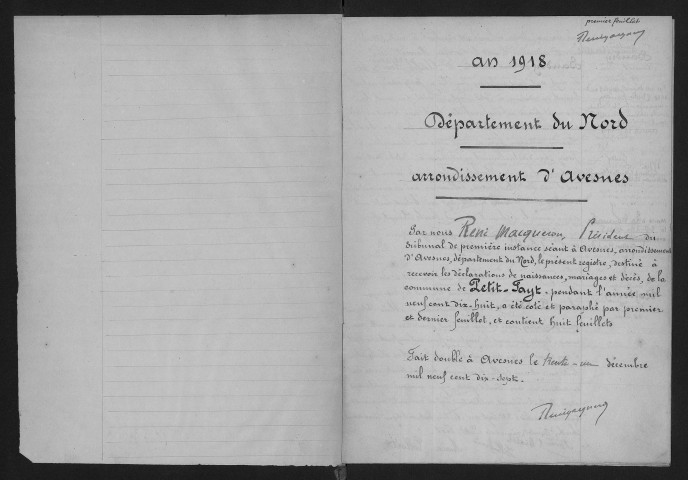 premier feuillet
an 1918
Département du Nord
arrondissement d'Avesnes
Par nous René Macqueron, Président du
tribunal de première instance séant à Avesnes, arrondissement
d'Avesnes, département du Nord, le présent registre, destiné à
recevoir les déclarations de naissances, mariages et décès, de la
commune de Petit-Fayt, pendant l'année mil
neuf cent dix-huit, a été coté et paraphé par premier
et dernier feuillet, et contient huit feuillets
Fait double à Avesnes le trente-un décembre
mil neuf cent dix-sept.